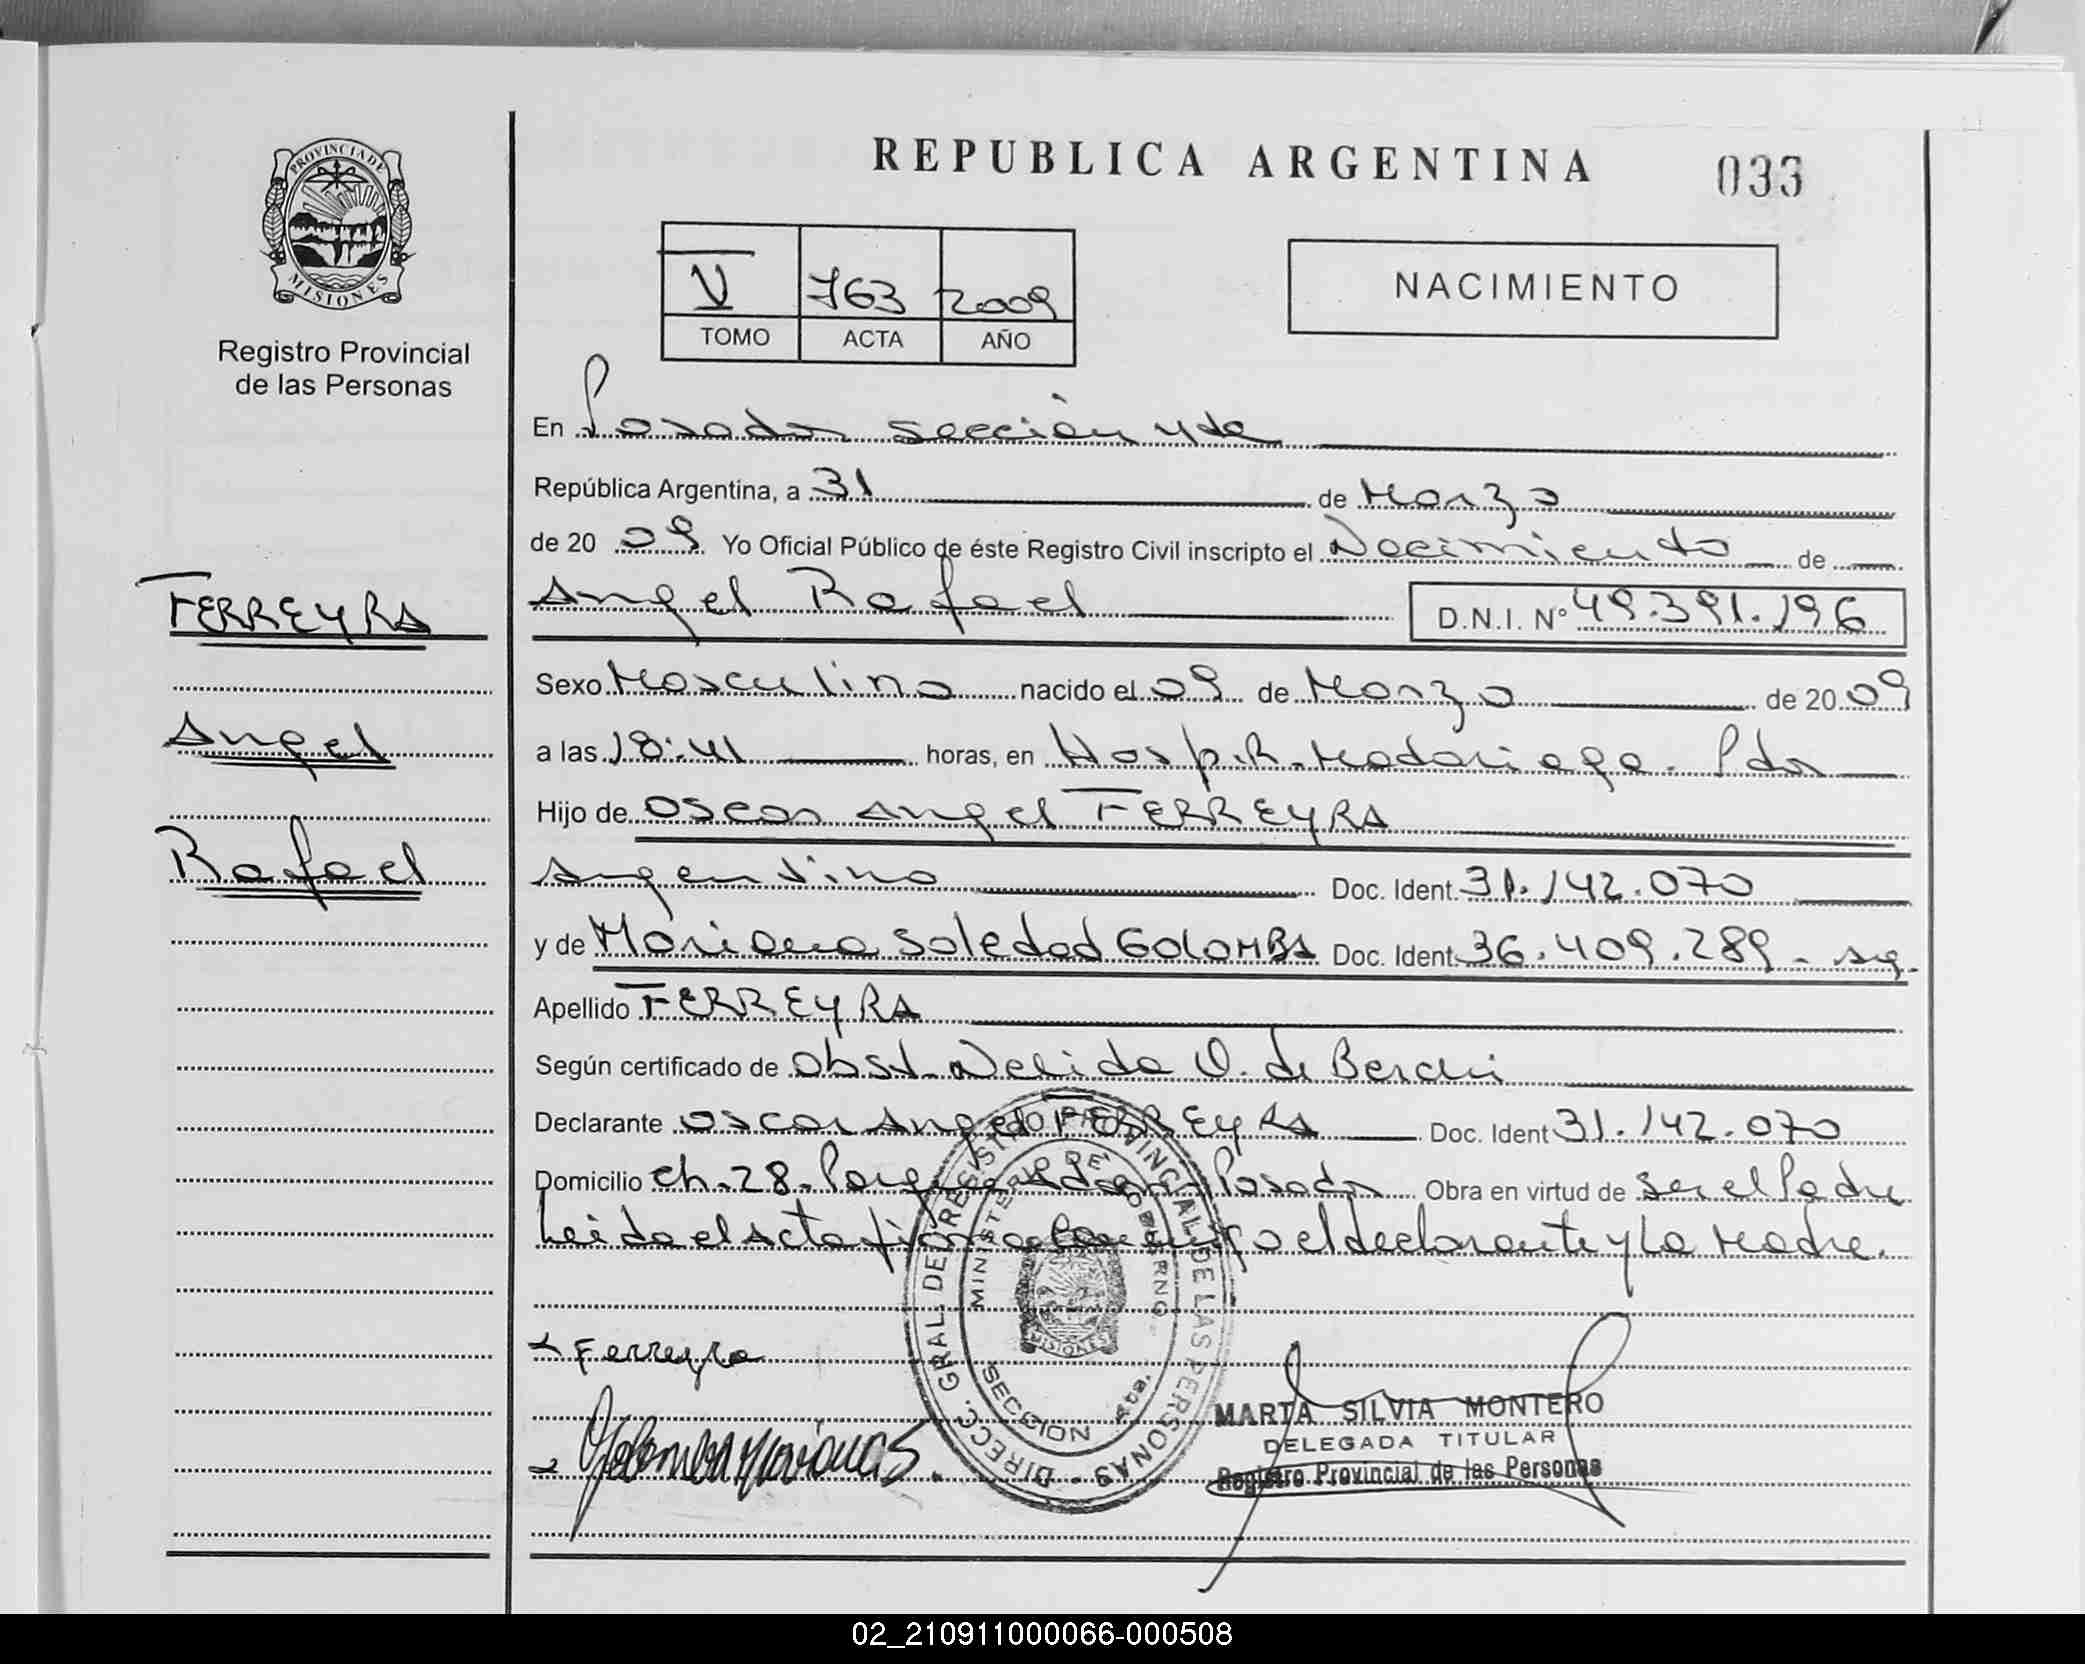 REPUBLICA ARGENTINA
033
PROVINCIA DE
MISIONES
Registro Provincial
de las Personas
V 763 2009
TOMO ACTA AÑO
NACIMIENTO
En Posadas sección 4ta
República Argentina, a 31 de Marzo
de 20 09 Yo Oficial Público de éste Registro Civil inscripto el Nacimiento de
FERREYRA
Angel Rafael D.N.I. Nº 49.391.196
Sexo Masculino nacido el 09 de Marzo de 20 09
Angel
a las 18:41 horas, en Hosp. R. Madariaga. Pdas
Hijo de Oscar Angel FERREYRA
Rafael
Argentino Doc. Ident. 31.142.070
y de Mariana Soledad GOLOMBA Doc. Ident. 36.409.289 - Arg.
Apellido FERREYRA
Según certificado de Obst. Nelida O. de
Declarante Oscar Angel FERREYRA Doc. Ident 31.142.070
Domicilio Ch. 28. Posadas Obra en virtud de Ser el Padre
Leida el Acta firma conmigo el declarante y la Madre.
DIRECC. GRAL. DE REGISTRO PROVINCIAL DE LAS PERSONAS
MINISTERIO DE GOBIERNO
MISIONES
SECCION 4ta.
Ferreyra
MARTA SILVIA MONTERO
DELEGADA TITULAR
Registro Provincial de las Personas
02_210911000066-000508